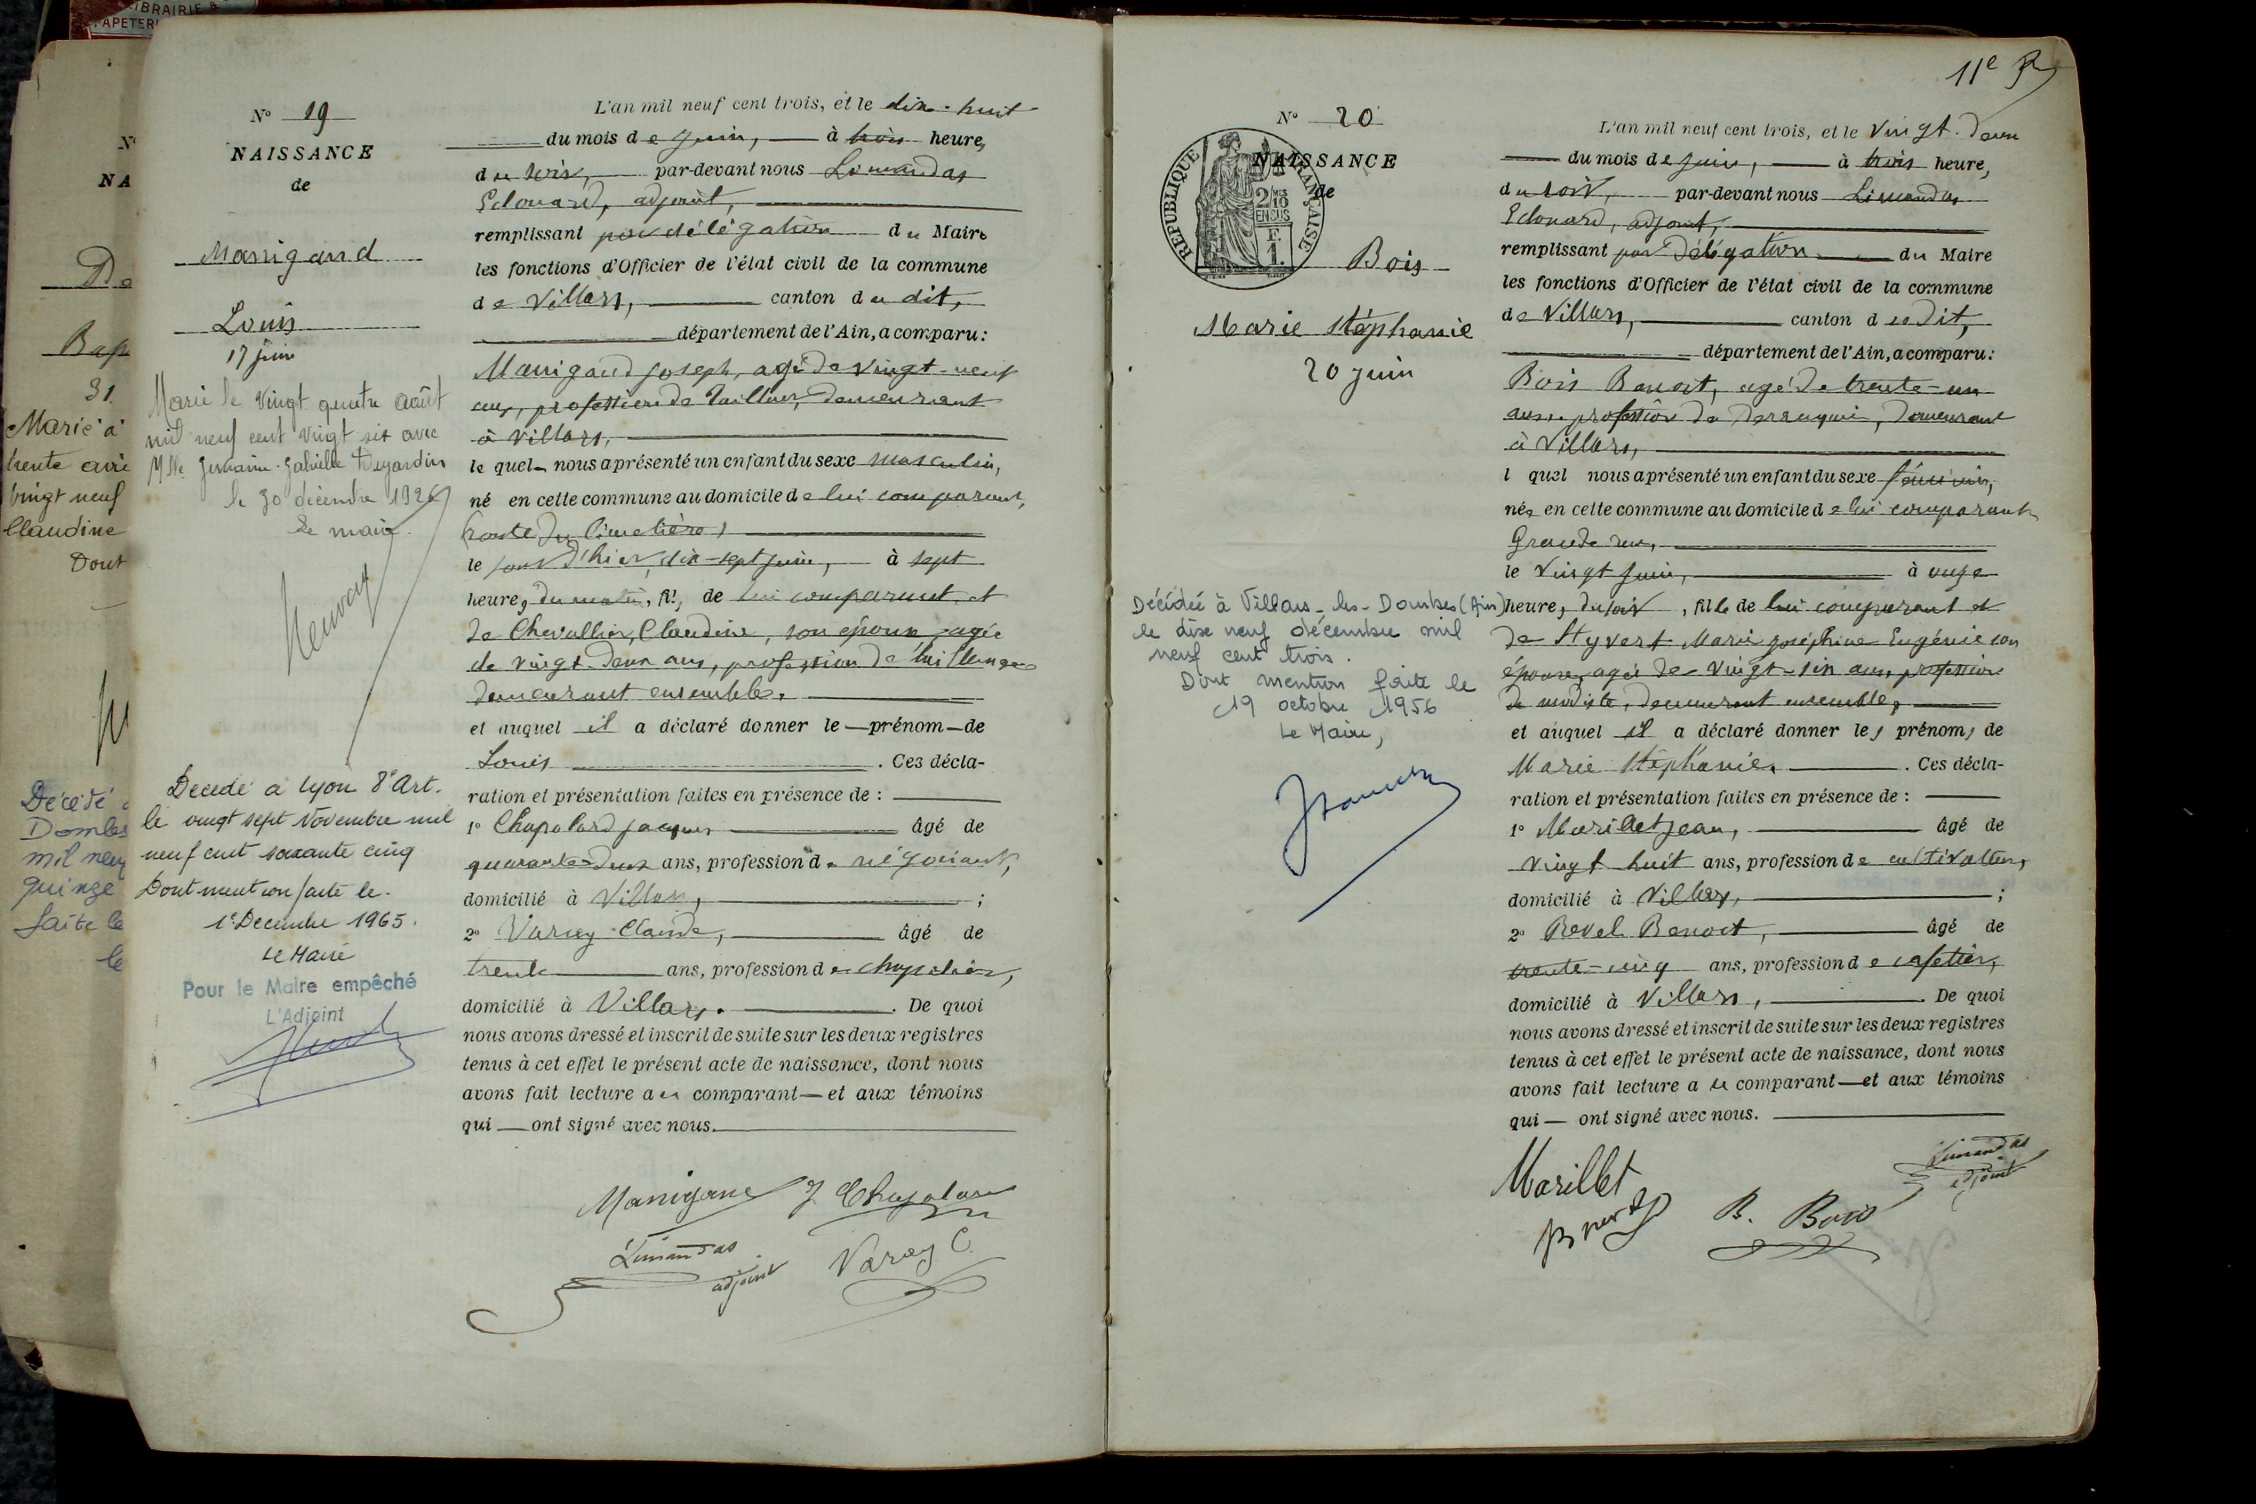 LIBRAIRIE &
PAPETERI
N
NA
De
Bap
31
Marié à
trente avri
vingt neuf
Claudine
Dont
Décédé
Dombes
mil neuf
quinze
faite le
le
N° 19
NAISSANCE
de
Manigand
Louis
17 juin
Marié le vingt quatre août
mil neuf cent vingt six avec
Mlle Germaine Gabrielle Dujardin
le 30 décembre 1926
Le maire.
Décédé à Lyon 8e Art.
le vingt sept Novembre mil
neuf cent soixante cinq
Dont mention faite le
1er Décembre 1965.
Le Maire
Pour le Maire empêché
L'Adjoint
L'an mil neuf cent trois, et le dix-huit
du mois de Juin, à trois heures
du soir, par-devant nous Limandas
Edouard, adjoint,
remplissant par délégation du Maire
les fonctions d'Officier de l'état civil de la commune
de Villars, canton du dit,
département de l'Ain, a comparu:
Manigand Joseph, agé de vingt-neuf
ans, profession de Tailleur, demeurant
à Villars,
le quel nous a présenté un enfant du sexe masculin,
né en cette commune au domicile de lui comparant,
(route du Cimetière)
le jour d'hier, dix-sept juin, à sept
heures du matin, fils de lui comparant et
de Chevallier, Claudine, son épouse, agée
de vingt-deux ans, profession de tailleuse
demeurant ensemble.
et auquel il a déclaré donner le prénom de
Louis . Ces décla-
ration et présentation faites en présence de :
1° Chapolard Jacques âgé de
quarante-deux ans, profession de négociant,
domicilié à Villars, ;
2° Varey Claude, âgé de
trente ans, profession de chapelier,
domicilié à Villars. . De quoi
nous avons dressé et inscrit de suite sur les deux registres
tenus à cet effet le présent acte de naissance, dont nous
avons fait lecture au comparant et aux témoins
qui ont signé avec nous.
Manigand J Chapolard
Limandas
adjoint
Varey C.
11e
N° 20
NAISSANCE
de
REPUBLIQUE FRANÇAISE
2/10
EN SUS
F.
1.
Bois
Marie Stéphanie
20 juin
Décédée à Villars-les-Dombes (Ain)
le dix neuf décembre mil
neuf cent trois.
Dont mention faite le
19 octobre 1956
Le Maire,
L'an mil neuf cent trois, et le vingt-deux
du mois de juin, à trois heures
du soir, par-devant nous Limandas
Edouard, adjoint,
remplissant par délégation du Maire
les fonctions d'Officier de l'état civil de la commune
de Villars, canton du dit,
département de l'Ain, a comparu:
Bois Benoit, agé de trente-un
ans, profession de demeurant
à Villars,
l quel nous a présenté un enfant du sexe féminin,
née en cette commune au domicile de lui comparant
Grande rue,
le vingt Juin, à onze
heures du soir, fille de lui comparant et
de Styvert Marie Joséphine Eugénie son
épouse, agée de vingt-six ans, profession
de modiste, demeurant ensemble,
et auquel il a déclaré donner les prénoms de
Marie Stéphanie. . Ces décla-
ration et présentation faites en présence de :
1° Marillet Jean, âgé de
vingt huit ans, profession de cultivateur,
domicilié à Villars, ;
2° Revel Benoit, âgé de
trente-cinq ans, profession de cafetier,
domicilié à Villars, . De quoi
nous avons dressé et inscrit de suite sur les deux registres
tenus à cet effet le présent acte de naissance, dont nous
avons fait lecture au comparant et aux témoins
qui ont signé avec nous.
Marillet
Limandas
adjoint
B. Bois